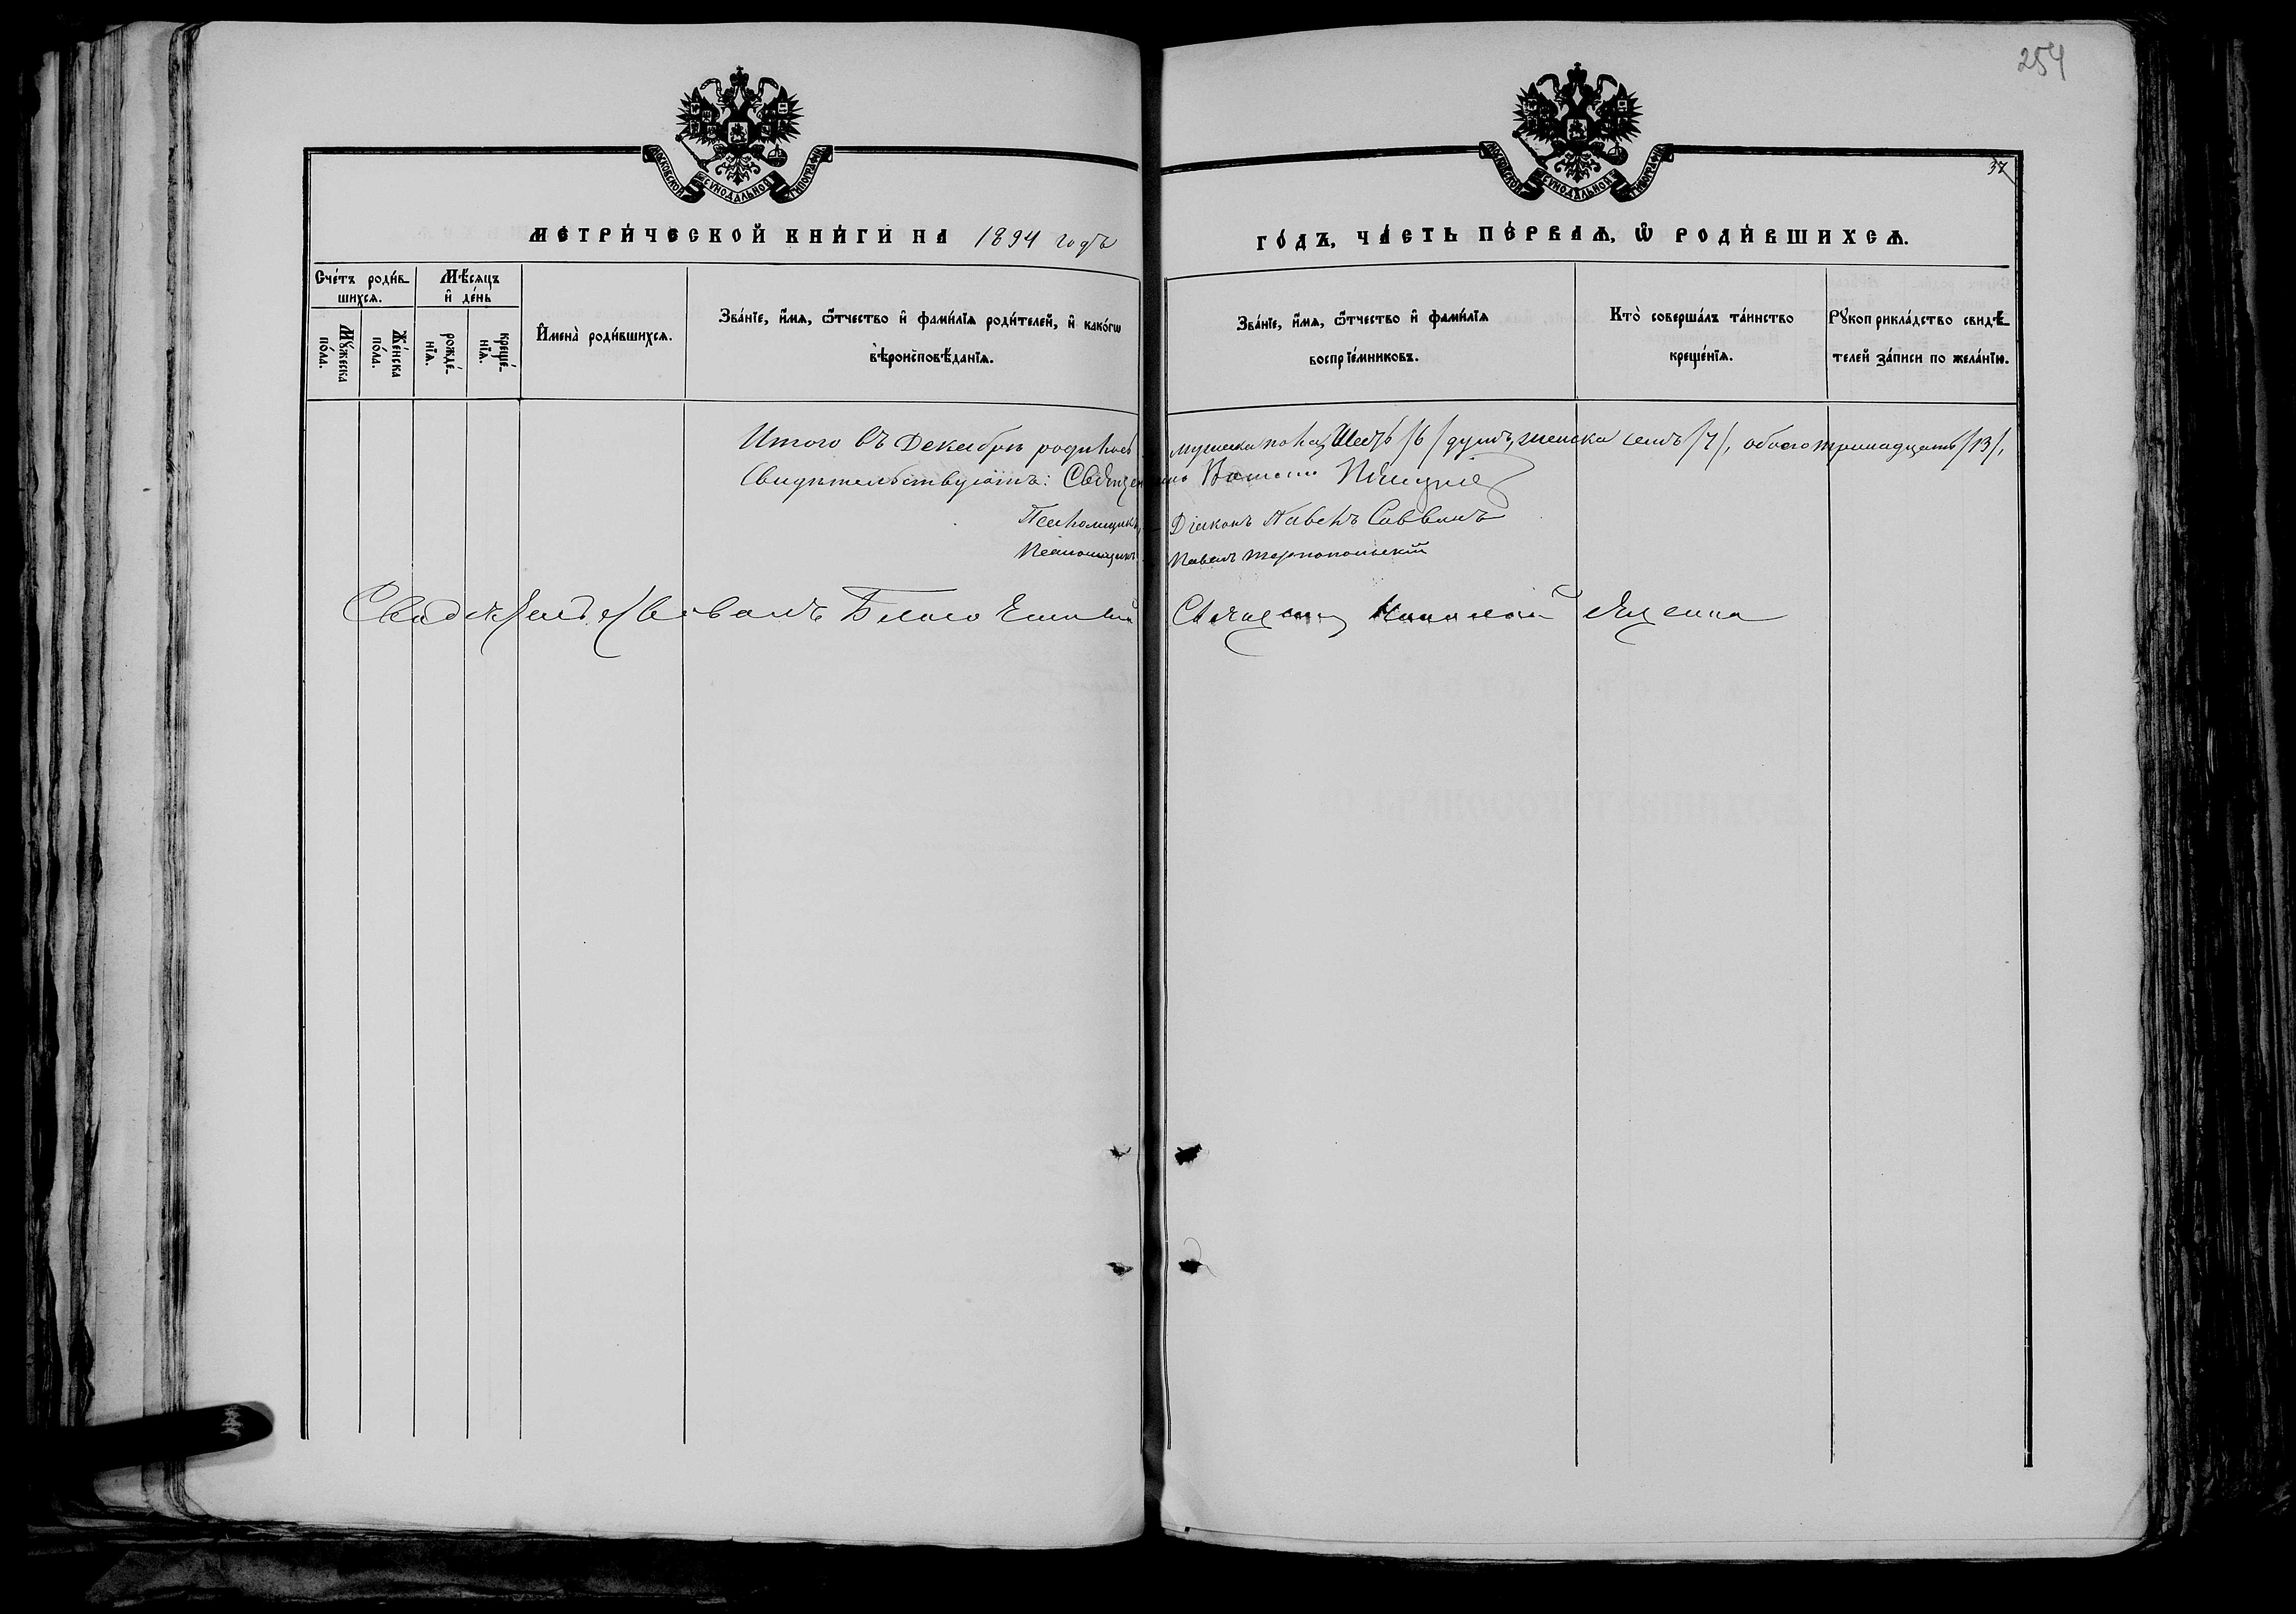 254
37
МОСКОВСКОЙ СѴНОДАЛЬНОЙ ТИПОГРАФІИ
МОСКОВСКОЙ СѴНОДАЛЬНОЙ ТИПОГРАФІИ
МЕТРИ́ЧЕСКОЙ КНИ́ГИ НА 1894 годъ
ГО́ДЪ, ЧА́СТЬ ПЕ́РВАѦ, Ѡ҆ РОДИ́ВШИХСѦ.
Сче́тъ роди́в
шихсѧ.
Мꙋ́жеска
по́ла.
Же́нска
по́ла.
Мѣ́сяцъ
и҆ де́нь
рожде́-
нїѧ.
креще́-
нїѧ.
И҆мена̀ роди́вшихсѧ.
Зва́нїе, и҆́мѧ, ѻ҆́тчество и҆ фами́лїѧ роди́телей, и҆ како́гѡ
вѣроисповѣ́данїѧ.
Зва́нїе, и҆́мѧ, ѻ҆́тчество и҆ фами́лїѧ
воспрїе́мниковъ.
Кто̀ соверша́лъ та́инство
креще́нїѧ.
Рꙋкоприкла́дство свидѣ́
телей за́писи по жела́нїю.
Итого въ Декабрѣ родилось мужеска пола Шесть /6/ душъ, женска семь /7/, обоего тринадцать /13/,
Свидѣтельствуютъ: Священникъ
Псаломщикъ, Діаконъ Павелъ Саввинъ
Псаломщикъ Павелъ Тарнопольскій
Свидѣтельствовалъ Благочинный Священникъ Николай